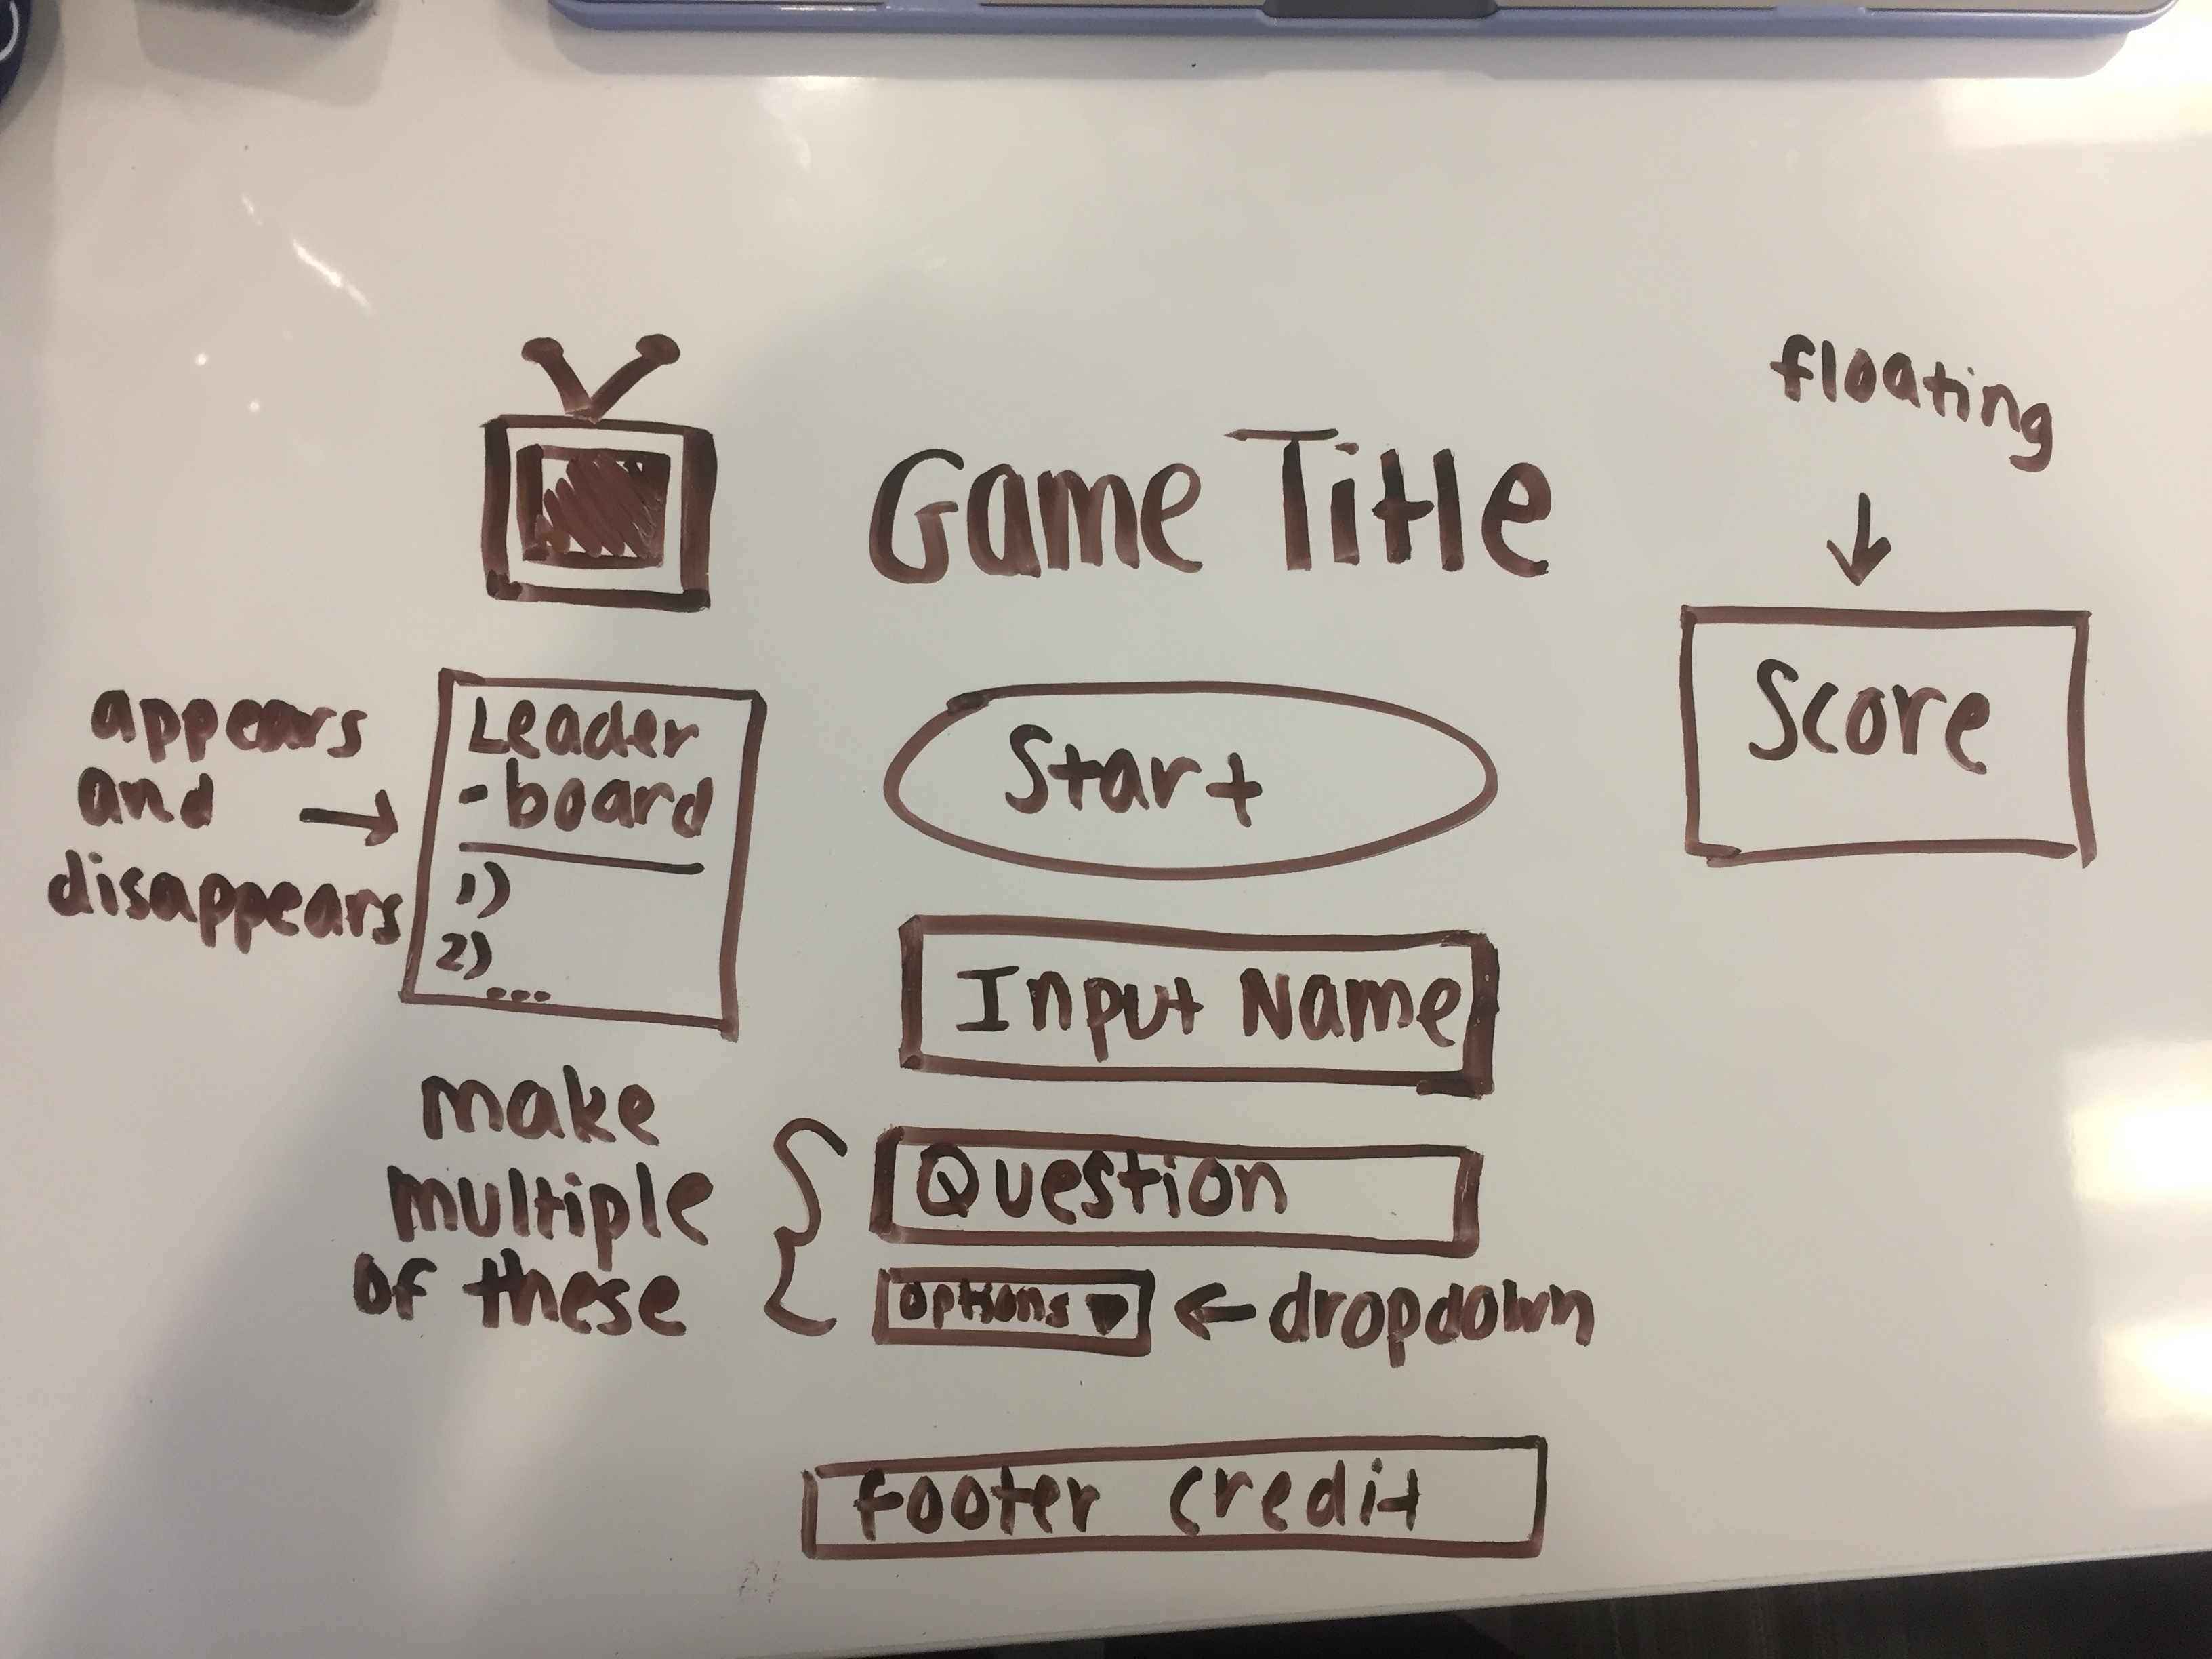 floating
Game Title
Score
appears
and
disappears
Leader
-board
1)
2)
...
Start
Input Name
make
multiple
of these
Question
options
dropdown
footer credit